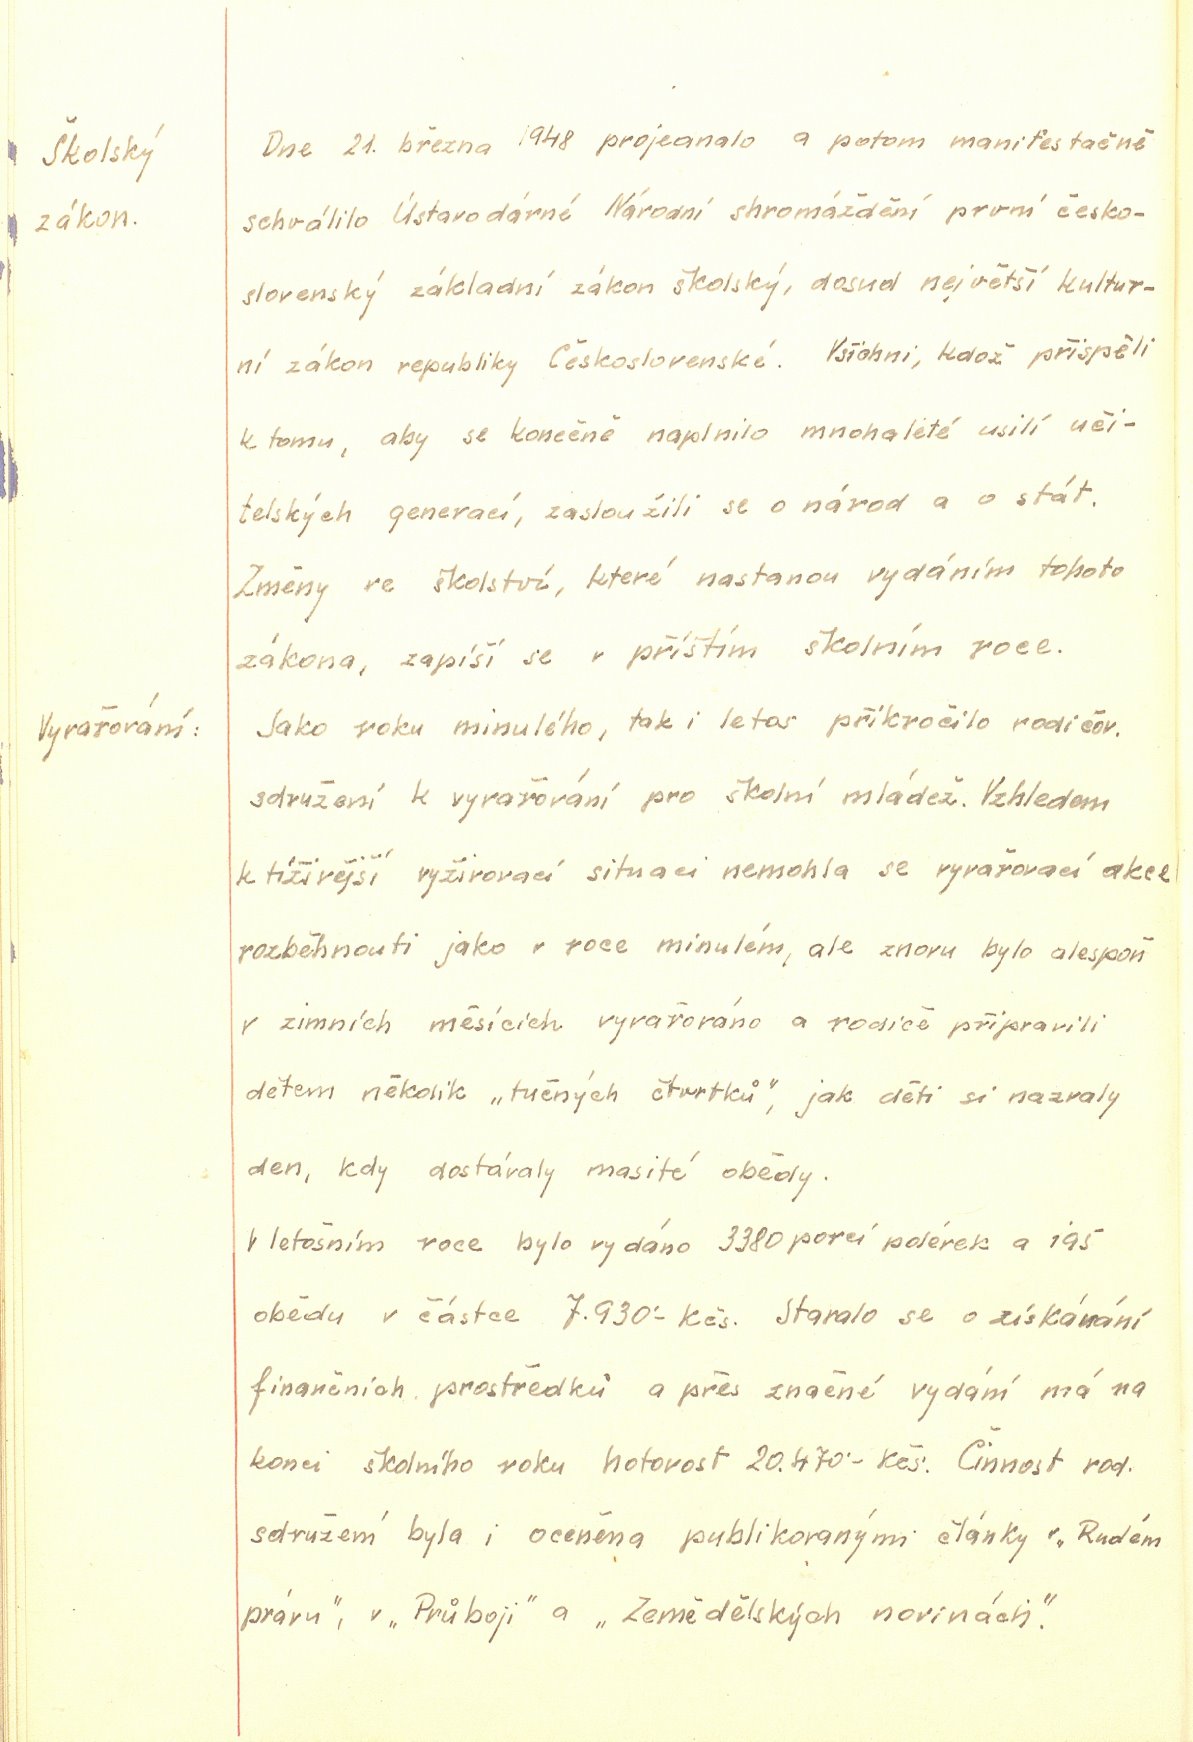 Školský
zákon.
Dne 21. března 1948 projednalo a potom manifestačně
schválilo Ústavodárné Národní shromáždění první česko-
slovenský základní zákon školský, dosud největší kultur-
ní zákon republiky Československé. Všichni, kdož přispěli
k tomu, aby se konečně naplnilo mnohaleté usilí uči-
telských generací, zasloužili se o národ a o stát.
Změny ve školství, které nastanou vydáním tohoto
zákona, zapíší se v příštím školním roce.
Vyvařování:
Jako roku minulého, tak i letos přikročilo rodičov.
sdružení k vyvařování pro školní mládež. Vzhledem
k tíživější vyživovací situaci nemohla se vyvařovací akce
rozběhnouti jako v roce minulém, ale znovu bylo alespoň
v zimních měsících vyvařováno a rodiče připravili
dětem několik „tučných čtvrtků“, jak děti si nazvaly
den, kdy dostávaly masité obědy.
V letošním roce bylo vydáno 3380 porcí polévek a 195
obědu v částce 7.930·- Kčs. Staralo se o získávání
finančních prostředků a přes značné vydání má na
konci školního roku hotovost 20.470·- Kčs. Činnost rod.
sdružení byla i oceněna publikovanými články v „Rudém
právu“, v „Průboji“ a „Zemědělských novinách“.